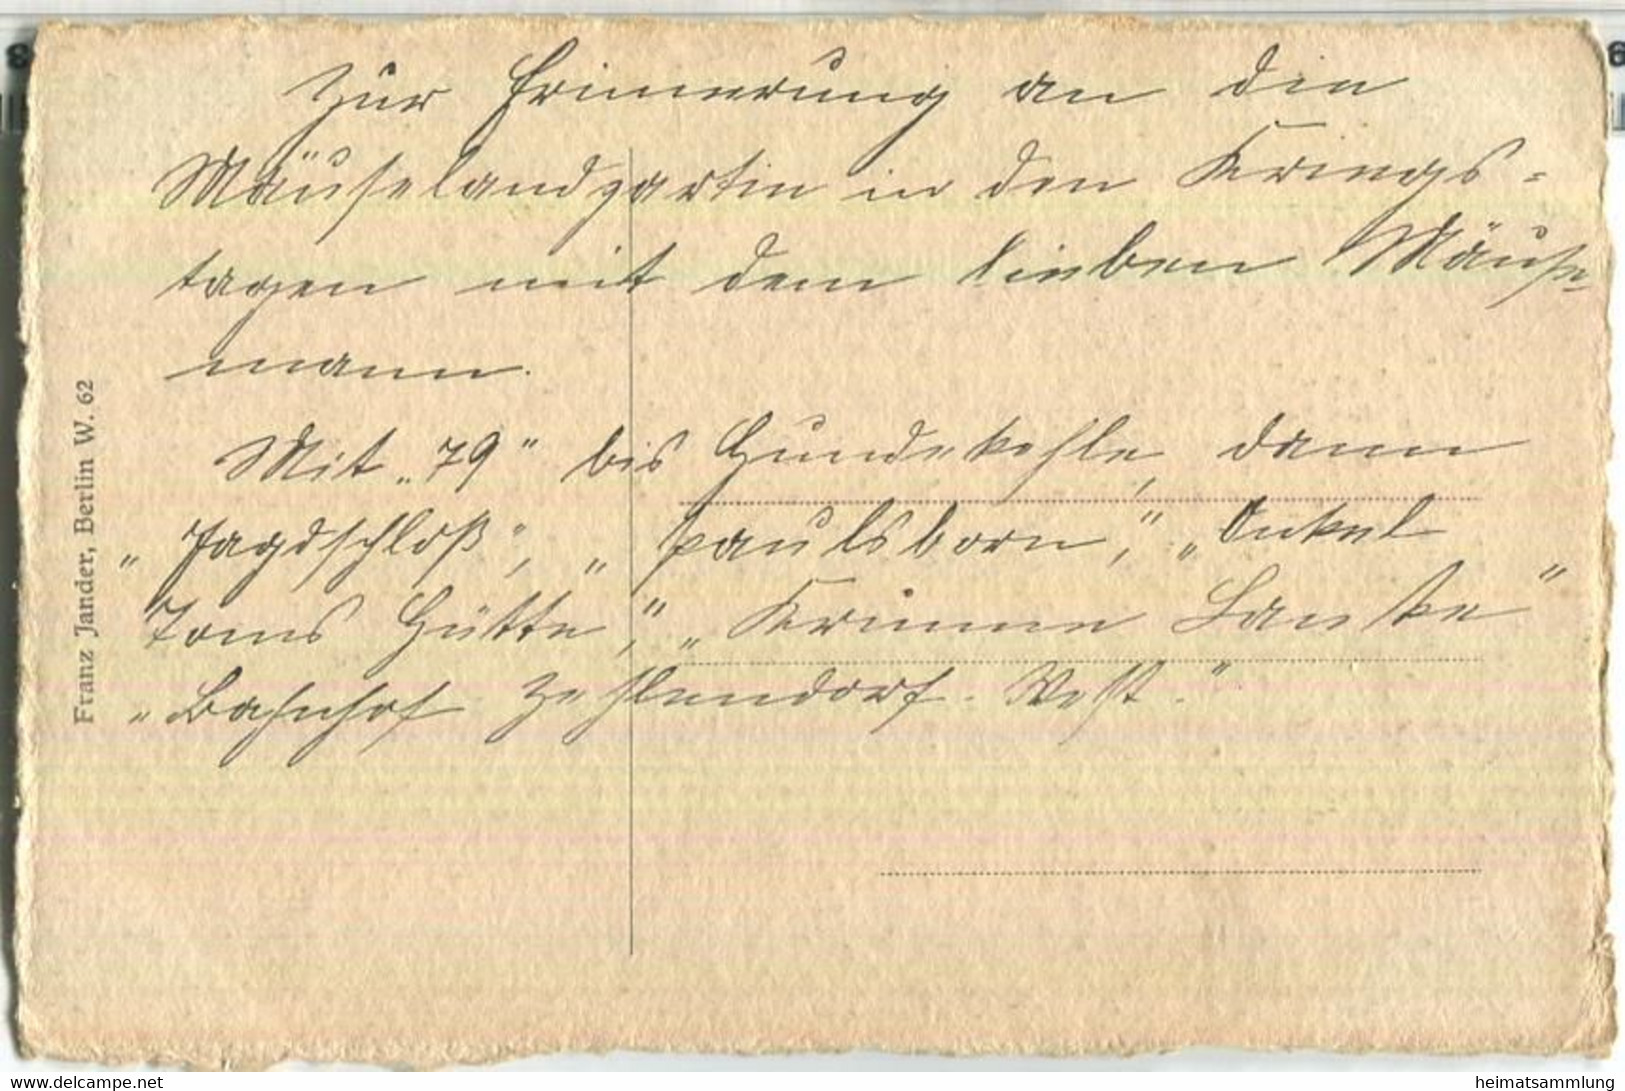 Zur Erinnerung an die
Mäuselandpartie in den Kriegs-
tagen mit dem lieben Mäuse-
mann.
Mit „79" bis Hundekehle, dann
„Jagdschloß", „Paulsborn", „Onkel
Toms Hütte", „Krumme Lanke"
„Bahnhof Zehlendorf-West."
Franz Jander, Berlin W. 62
www.delcampe.net
heimatsammlung